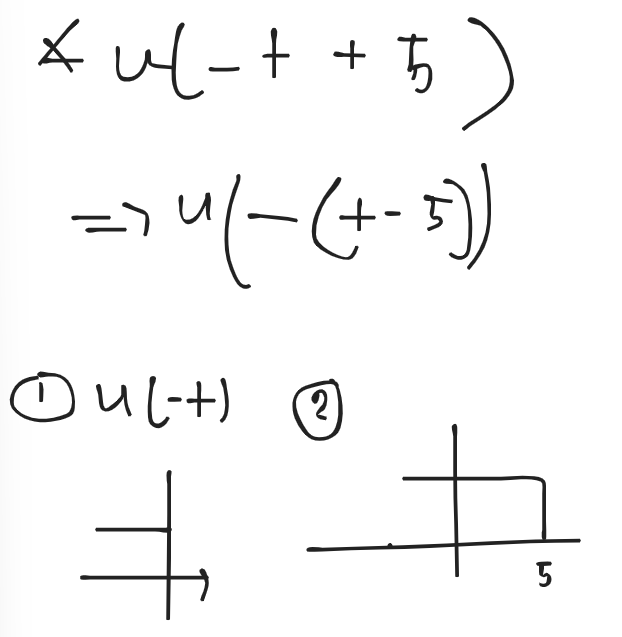 * u(-t + 5)
=> u(-(t - 5))
① u(-t) ②
5